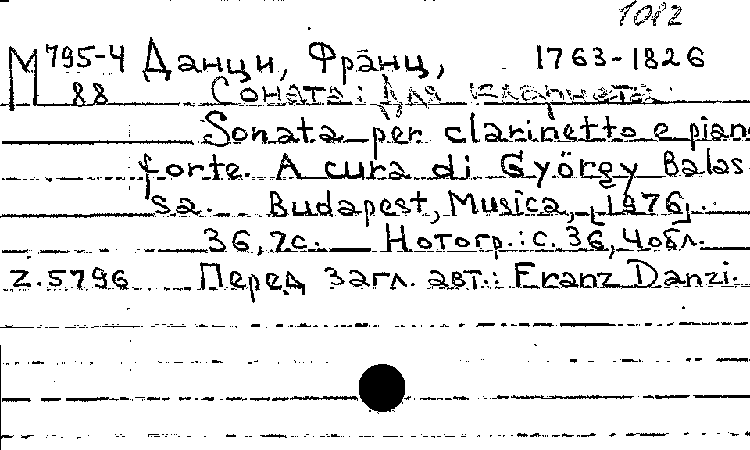 1082
М 795-4 Данци, Франц, 1763-1826
88 Соната: Для кларнета
Sonata per clarinetto e piano
forte. A cura di György Balas
sa. Budapest, Musica, [1976].
36,7с. Нотогр.: с. 36, 4 обл.
Z.5796 Перед загл. авт.: Franz Danzi.